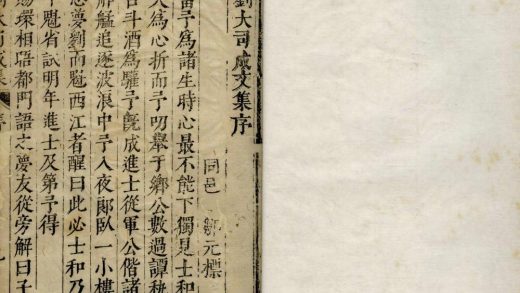 劉大司成文集序
同邑 鄒元標
予爲諸生時心最不能下獨見士和
爲心折而予叨舉于鄉公數過譚秇
斗酒爲驩予旣成進士從軍公偕諸
艋追逐波浪中予入夜郎臥一小樓
忽夢劉而魁西江者醒曰此必士和乃
魁省試明年進士及第予得
賜環相語都門語之夢友從旁解曰子
大司成集 序